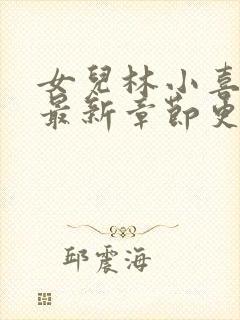 女兒林小喜
最新章節更
邱震海